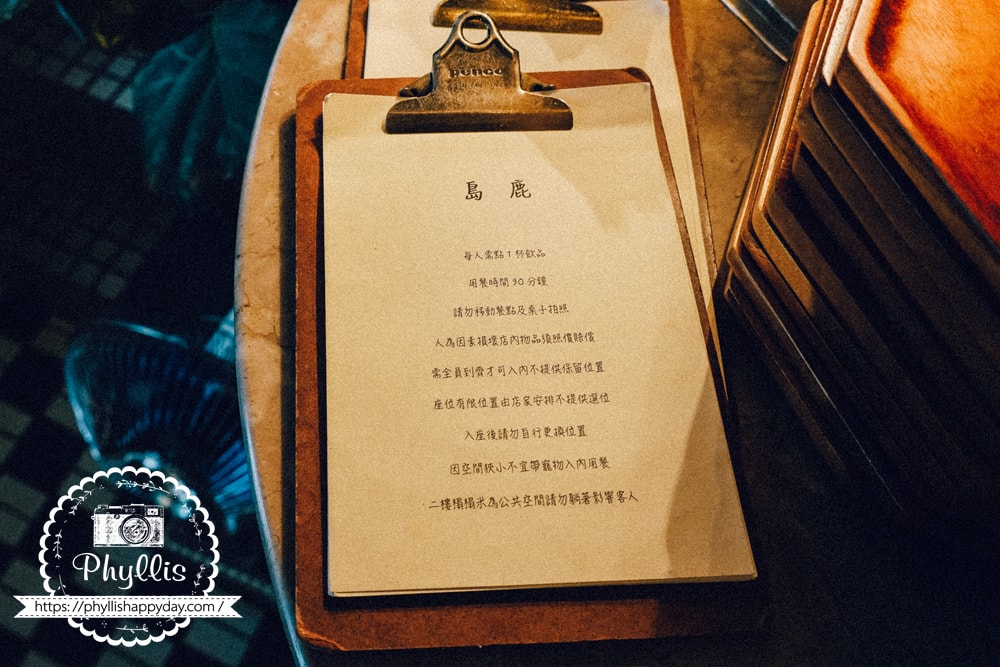 penco
島 鹿
每人需點1杯飲品
用餐時間90分鐘
請勿移動餐點及桌子拍照
人為因素損壞店內物品須照價賠償
需全員到齊才可入內不提供保留位置
座位有限位置由店家安排不提供選位
入座後請勿自行更換位置
因空間狹小不宜帶寵物入內用餐
二樓榻榻米為公共空間請勿躺著影響客人
Phyllis
https://phyllishappyday.com /